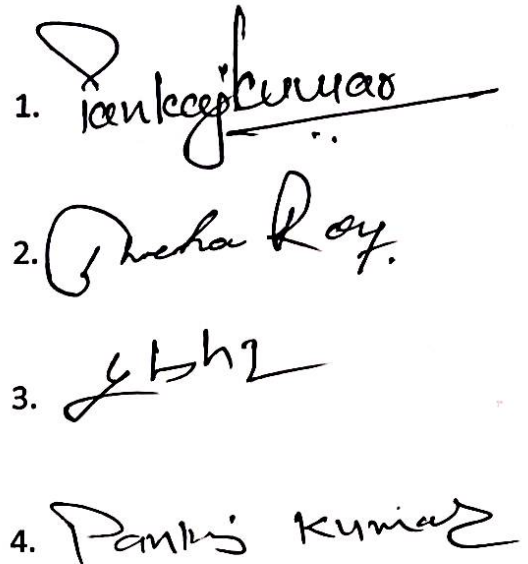 1. Pankajkumar
2. Sneha Roy.
3.
4. Pankaj Kumar